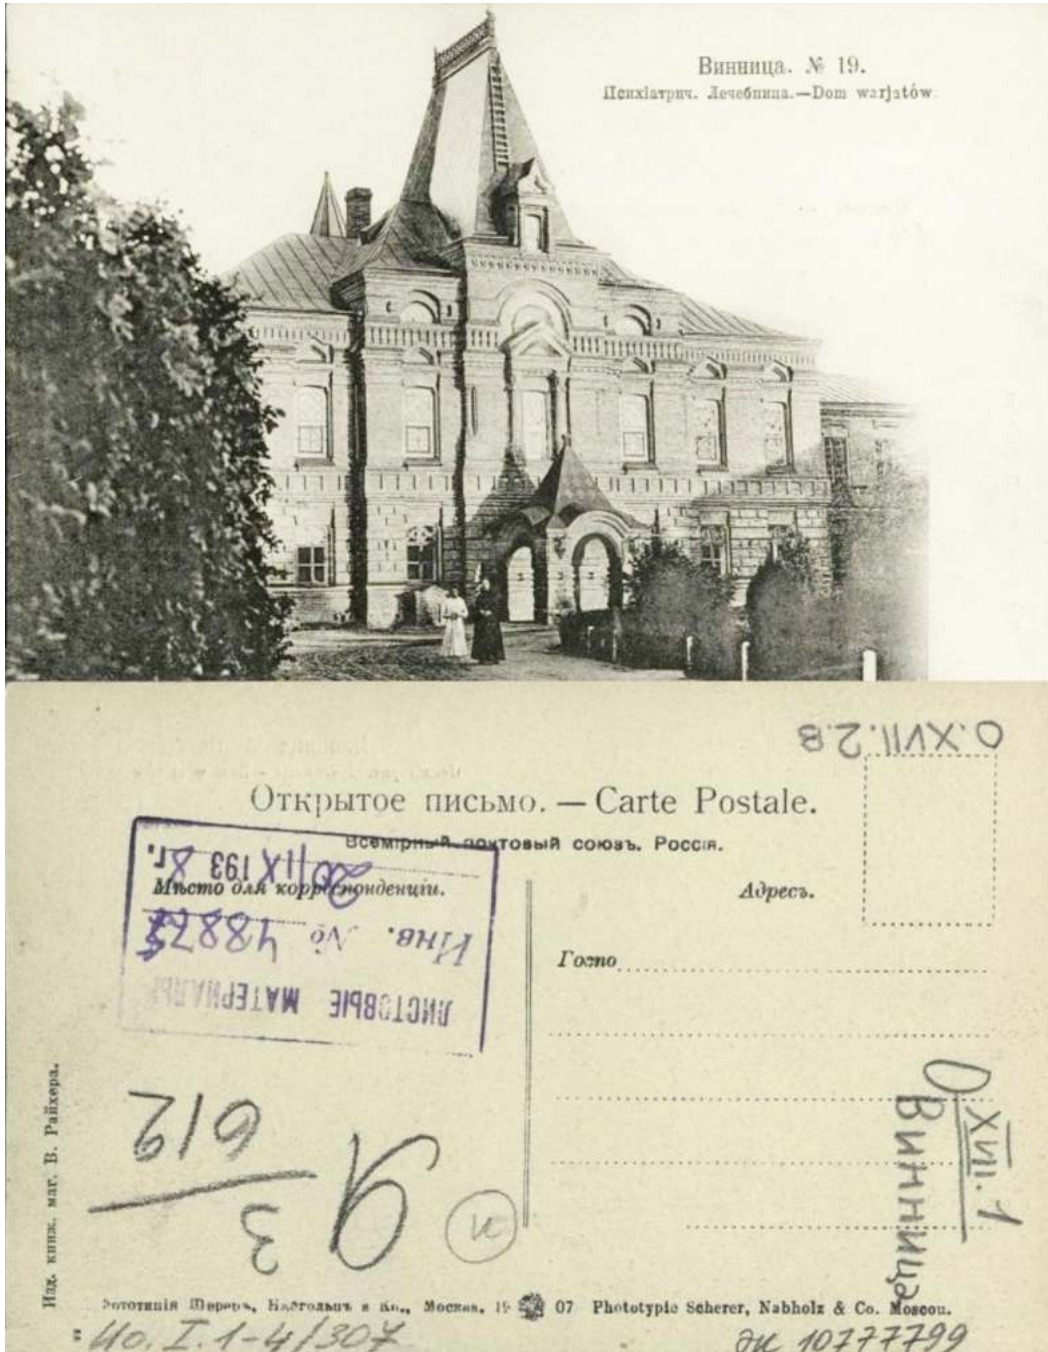 Винница. № 19.
Психіатрич. Лечебница.—Dom warjatów.
О.XVII.2.В
Открытое письмо. — Carte Postale.
Всемірный почтовый союзъ. Россія.
Мѣсто для корреспонденціи.
Адресъ.
Госпо
ЛИСТОВЫЕ МАТЕРИАЛЫ
Инв. № 48877
193 г.
Изд. книж. маг. В. Райхера.
619
3
О XVII.1
Винница
Фототипія Шереръ, Набгольцъ и Ко., Москва. 19 07 Phototypie Scherer, Nabholz & Co. Moscou.
Ио. I. 1-4/307
эк 10777799